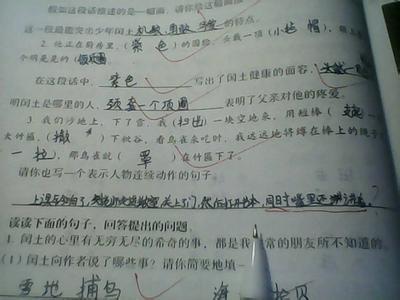 假如这段话描述的是一幅画,请你给这幅画
这一段最能突出少年闰土机敏、勇敢、的特点。
2. 他正在厨房里,(紫色)的圆脸,头戴一顶(小毡帽),颈上
个明晃晃的(银项圈
在这段话中,紫色写出了闰土健康的面容,头戴一
明闰土是哪里的人,颈套一个项圈表明了父亲对他的疼爱。
3 我们沙地上,下了雪,我(扫出)一块空地来,用短棒(支起)一
大竹匾,(撒)下秕谷,看鸟雀来吃时,我远远地将缚在棒上的绳子
一拉,那鸟雀就(罩)在竹匾下了。
请你也写一个表示人物连续动作的句子。
上课了,关上了门,然后打开书本,同时嘴里还
读读下面的句子,回答提出的问题。
1. 闰土的心里有无穷无尽的希奇的事,都是我常的朋友所不知道的。
(1) 闰土向作者说了哪些事?请你简要地填一
雪地捕鸟 海拾贝